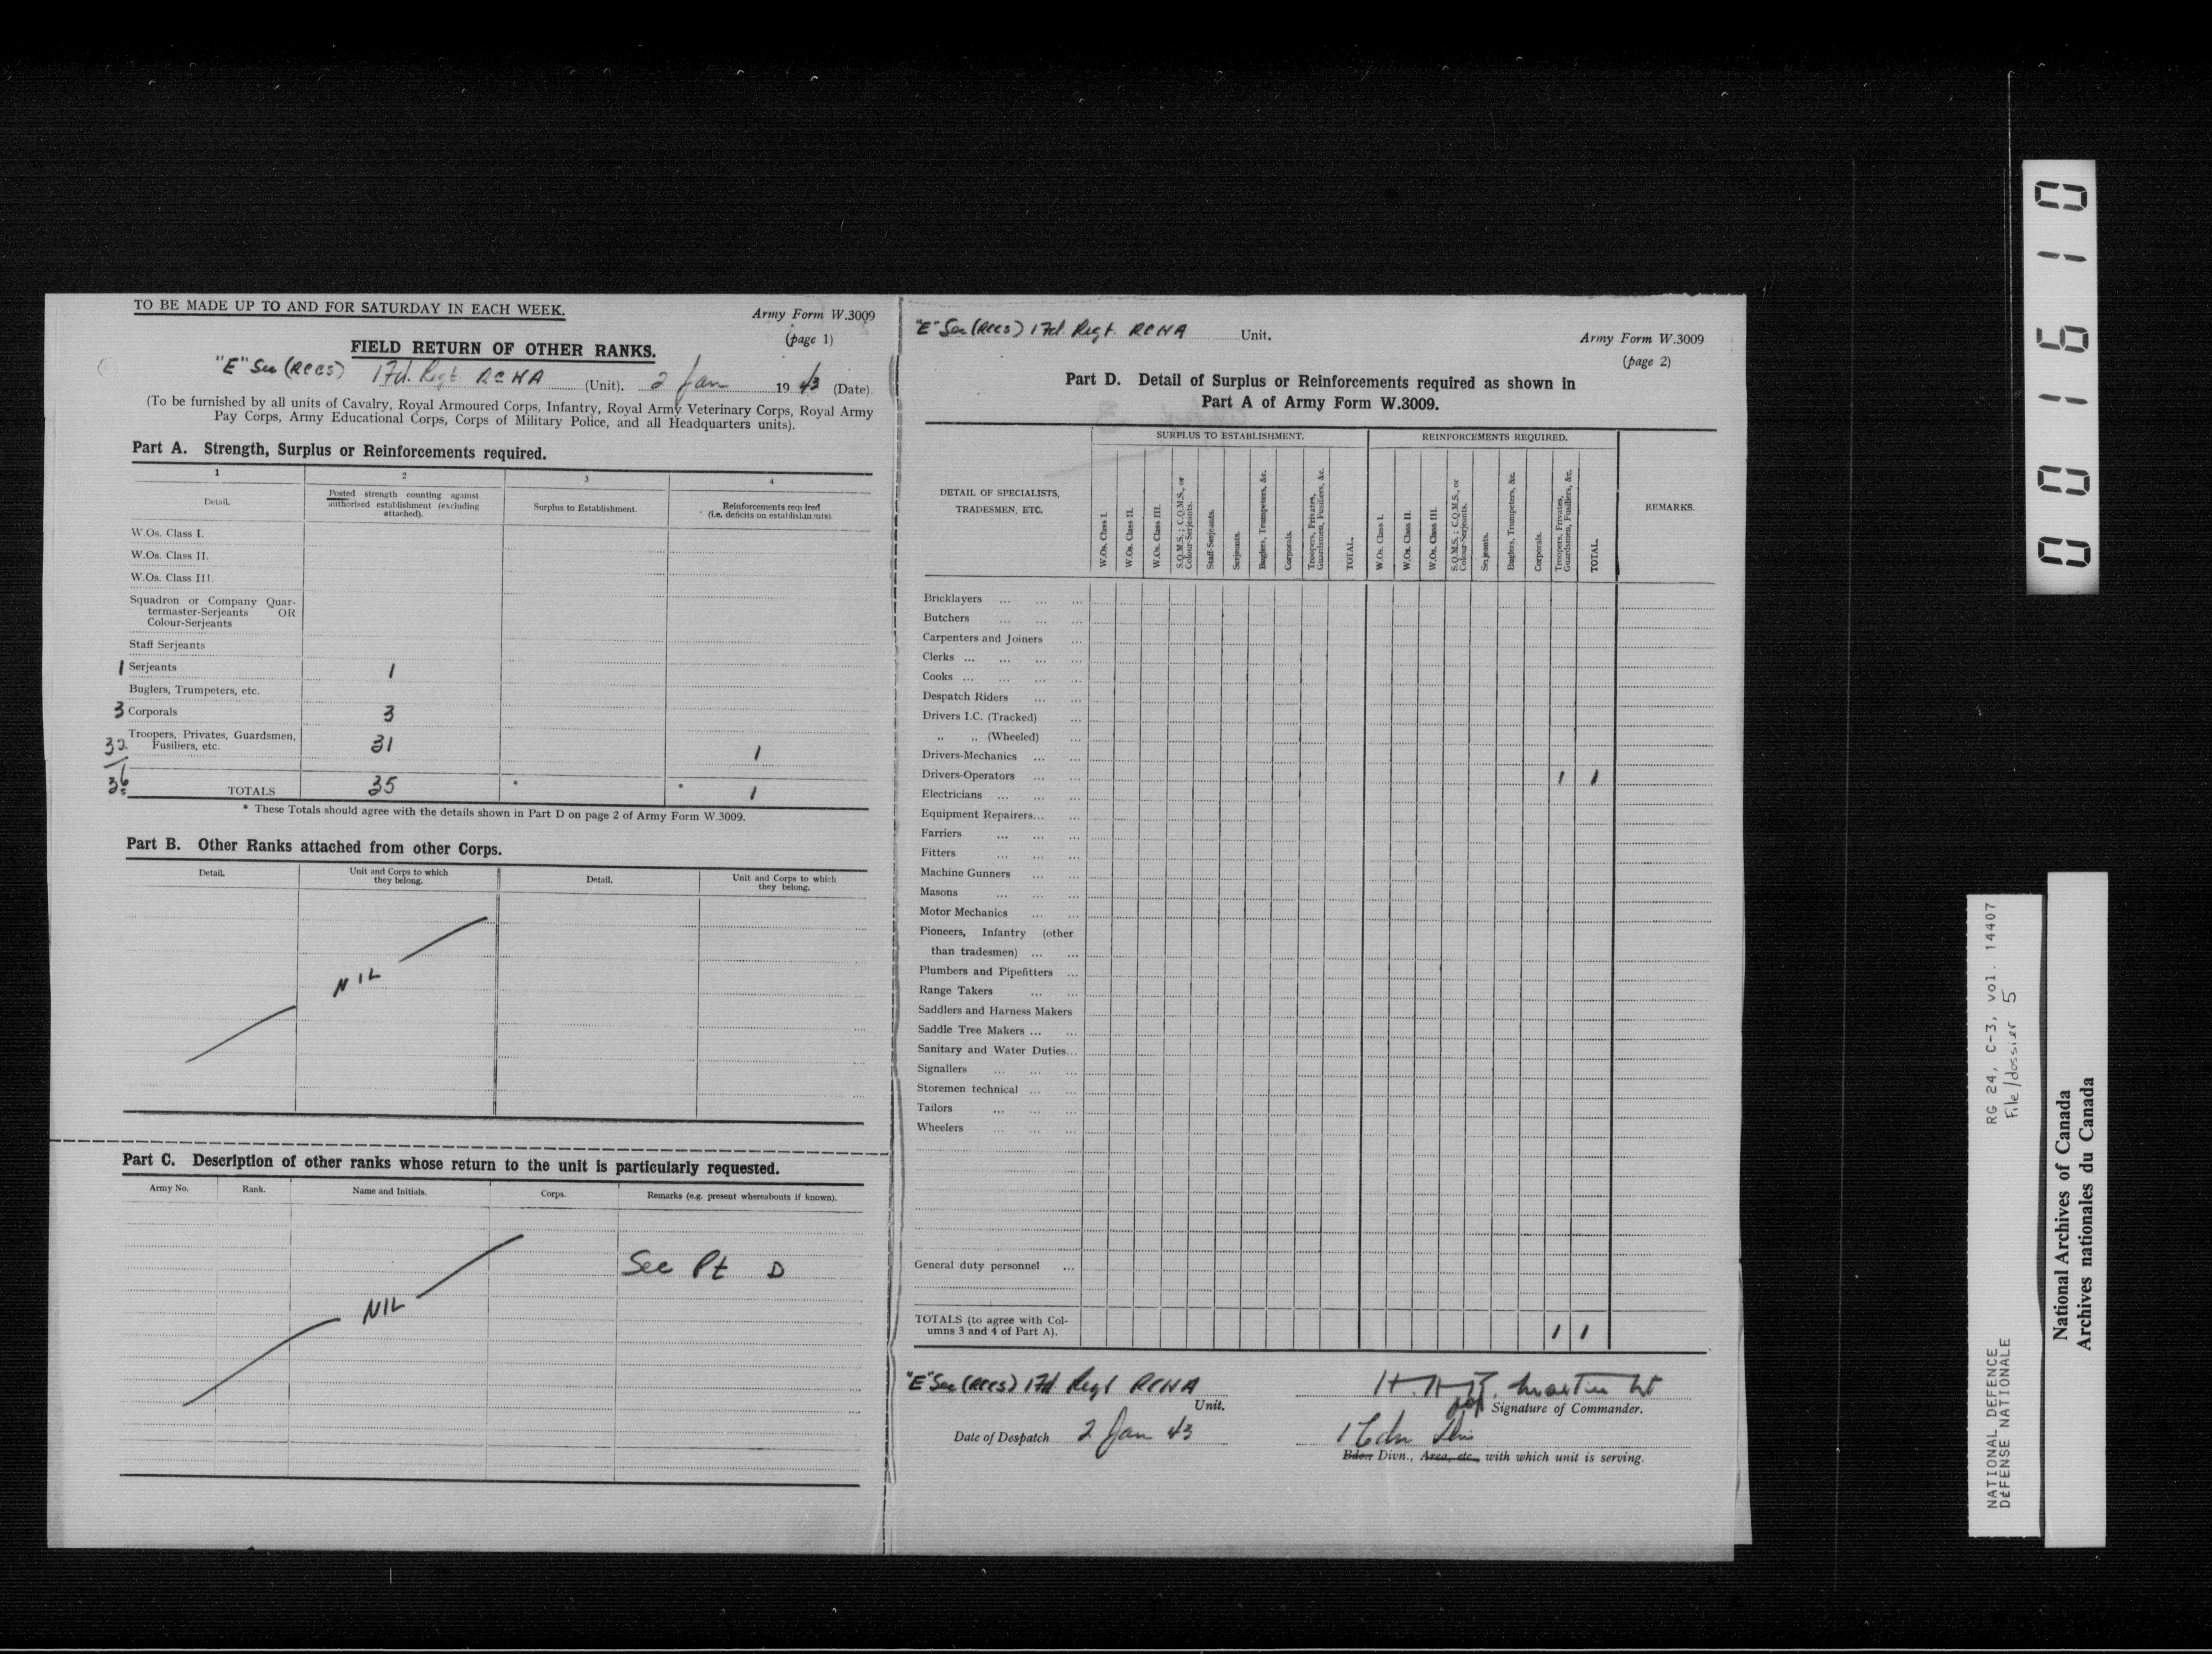 TO BE MADE UP TO AND FOR SATURDAY IN EACH WEEK.
Army Form W.3009
(page 1)
FIELD RETURN OF OTHER RANKS.
"E" Sec (RCCS) 1 Fd. Regt RCHA (Unit). 2 Jan 1943 (Date).
(To be furnished by all units of Cavalry, Royal Armoured Corps, Infantry, Royal Army Veterinary Corps, Royal Army
Pay Corps, Army Educational Corps, Corps of Military Police, and all Headquarters units).
Part A. Strength, Surplus or Reinforcements required.
1 2 3 4
Detail.
Posted strength counting against
authorised establishment (excluding
attached).
Surplus to Establishment.
Reinforcements required
(i.e. deficits on establishments).
W.Os. Class I.
W.Os. Class II.
W.Os. Class III.
Squadron or Company Quar-
termaster-Serjeants OR
Colour-Serjeants
Staff Serjeants
1 Serjeants 1
Buglers, Trumpeters, etc.
3 Corporals 3
Troopers, Privates, Guardsmen,
32 Fusiliers, etc. 31 1
36 TOTALS 35 * * 1
* These Totals should agree with the details shown in Part D on page 2 of Army Form W.3009.
Part B. Other Ranks attached from other Corps.
Detail.
Unit and Corps to which
they belong.
Detail.
Unit and Corps to which
they belong.
NIL
Part C. Description of other ranks whose return to the unit is particularly requested.
Army No. Rank. Name and Initials. Corps. Remarks (e.g. present whereabouts if known).
See Pt D
NIL
"E" Sec (RCCS) 1 Fd. Regt. RCHA Unit.
Army Form W.3009
(page 2)
Part D. Detail of Surplus or Reinforcements required as shown in
Part A of Army Form W.3009.
DETAIL OF SPECIALISTS,
TRADESMEN, ETC.
SURPLUS TO ESTABLISHMENT.
W.Os. Class I.
W.Os. Class II.
W.Os. Class III.
S.Q.M.S.; C.Q.M.S., or
Colour-Serjeants.
Staff-Serjeants.
Serjeants.
Buglers, Trumpeters, &c.
Corporals.
Troopers, Privates,
Guardsmen, Fusiliers, &c.
TOTAL.
REINFORCEMENTS REQUIRED.
W.Os. Class I.
W.Os. Class II.
W.Os. Class III.
S.Q.M.S.; C.Q.M.S., or
Colour-Serjeants.
Serjeants.
Buglers, Trumpeters, &c.
Corporals.
Troopers, Privates,
Guardsmen, Fusiliers, &c.
TOTAL.
REMARKS.
Bricklayers ... ... ...
Butchers ... ... ...
Carpenters and Joiners ...
Clerks ... ... ... ...
Cooks ... ... ... ...
Despatch Riders ... ...
Drivers I.C. (Tracked) ...
,, ,, (Wheeled) ...
Drivers-Mechanics ... ...
Drivers-Operators ... ... 1 1
Electricians ... ... ...
Equipment Repairers... ...
Farriers ... ... ...
Fitters ... ... ...
Machine Gunners ... ...
Masons ... ... ...
Motor Mechanics ... ...
Pioneers, Infantry (other
than tradesmen) ... ...
Plumbers and Pipefitters ...
Range Takers ... ...
Saddlers and Harness Makers
Saddle Tree Makers ... ...
Sanitary and Water Duties...
Signallers ... ... ...
Storemen technical ... ...
Tailors ... ... ...
Wheelers ... ... ...
General duty personnel ...
TOTALS (to agree with Col-
umns 3 and 4 of Part A). 1 1
"E" Sec (RCCS) 1 Fd Regt RCHA
Unit.
Date of Despatch 2 Jan 43
Martin Lt
Signature of Commander.
1 Cdn Div
Bde., Divn., Area, etc., with which unit is serving.
001610
RG 24, C-3, vol. 14407
File/dossier 5
NATIONAL DEFENCE
DÉFENSE NATIONALE
National Archives of Canada
Archives nationales du Canada